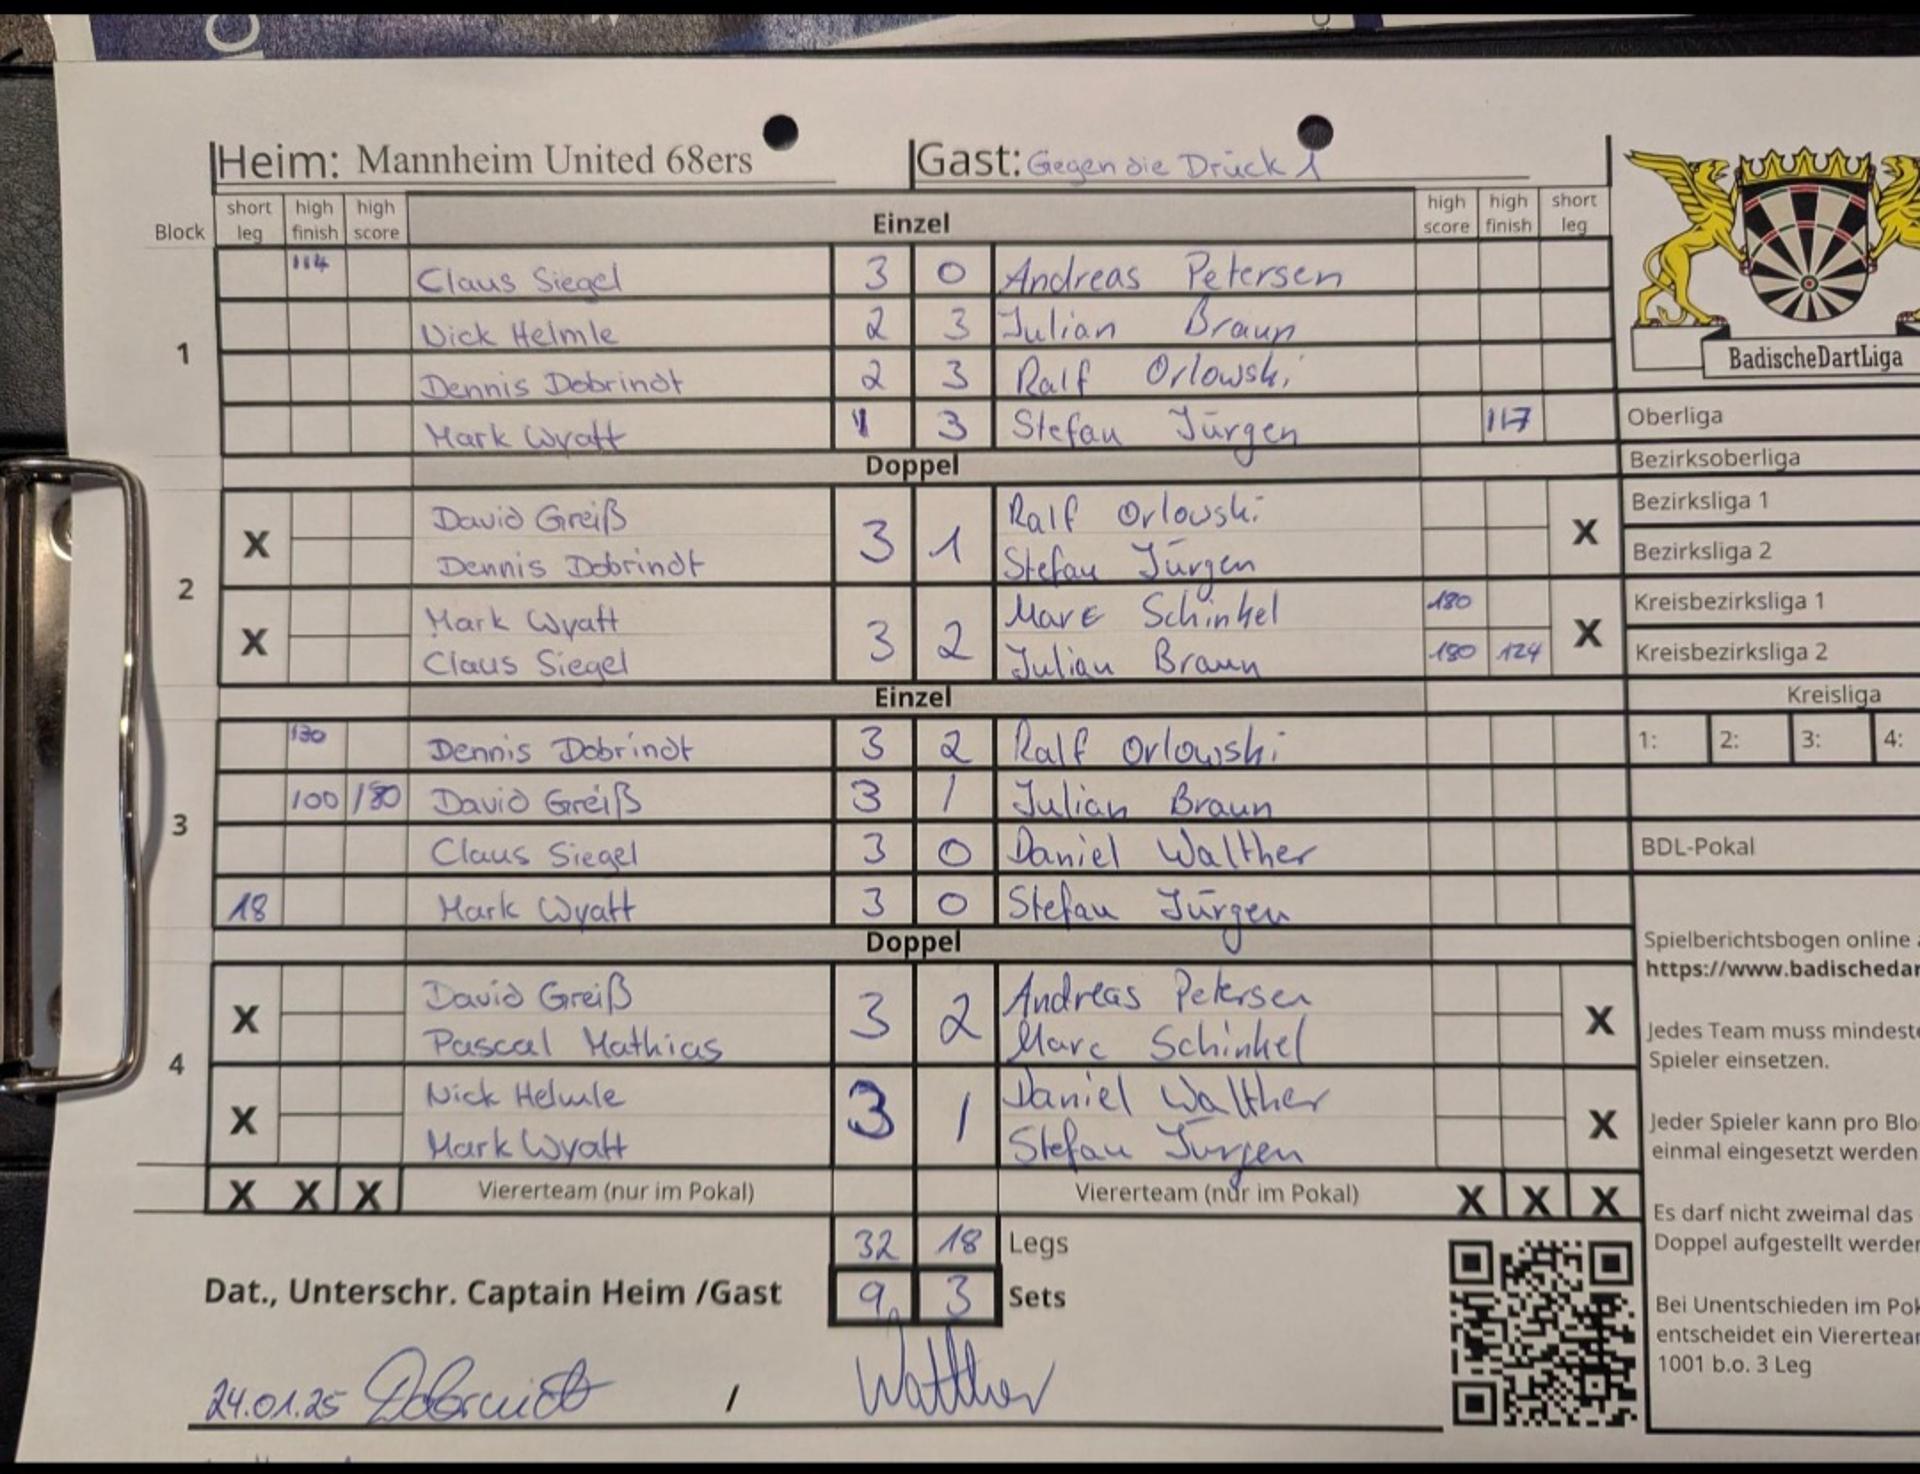 Heim: Mannheim United 68ers Gast: Gegen die Drück 1
Block short leg high finish high score Einzel high score high finish short leg
1
114 Claus Siegel 3 0 Andreas Petersen
Nick Helmle 2 3 Julian Braun
Dennis Dobrindt 2 3 Ralf Orlowski
Mark Wyatt 1 3 Stefan Jürgen 117
Doppel
2
X David Greiß 3 1 Ralf Orlowski X
Dennis Dobrindt Stefan Jürgen
X Mark Wyatt 3 2 Marc Schinkel 180 X
Claus Siegel Julian Braun 180 124
Einzel
3
130 Dennis Dobrindt 3 2 Ralf Orlowski
100 180 David Greiß 3 1 Julian Braun
Claus Siegel 3 0 Daniel Walther
18 Mark Wyatt 3 0 Stefan Jürgen
Doppel
4
X David Greiß 3 2 Andreas Petersen X
Pascal Mathias Marc Schinkel
X Nick Helmle 3 1 Daniel Walther X
Mark Wyatt Stefan Jürgen
X X X Viererteam (nur im Pokal) Viererteam (nur im Pokal) X X X
32 18 Legs
Dat., Unterschr. Captain Heim /Gast 9 3 Sets
24.01.25 Dobrindt / Walther
BadischeDartLiga
Oberliga
Bezirksoberliga
Bezirksliga 1
Bezirksliga 2
Kreisbezirksliga 1
Kreisbezirksliga 2
Kreisliga
1: 2: 3: 4:
BDL-Pokal
Spielberichtsbogen online
https://www.badischedar
Jedes Team muss mindeste
Spieler einsetzen.
Jeder Spieler kann pro Blo
einmal eingesetzt werden
Es darf nicht zweimal das
Doppel aufgestellt werder
Bei Unentschieden im Pok
entscheidet ein Vierertear
1001 b.o. 3 Leg